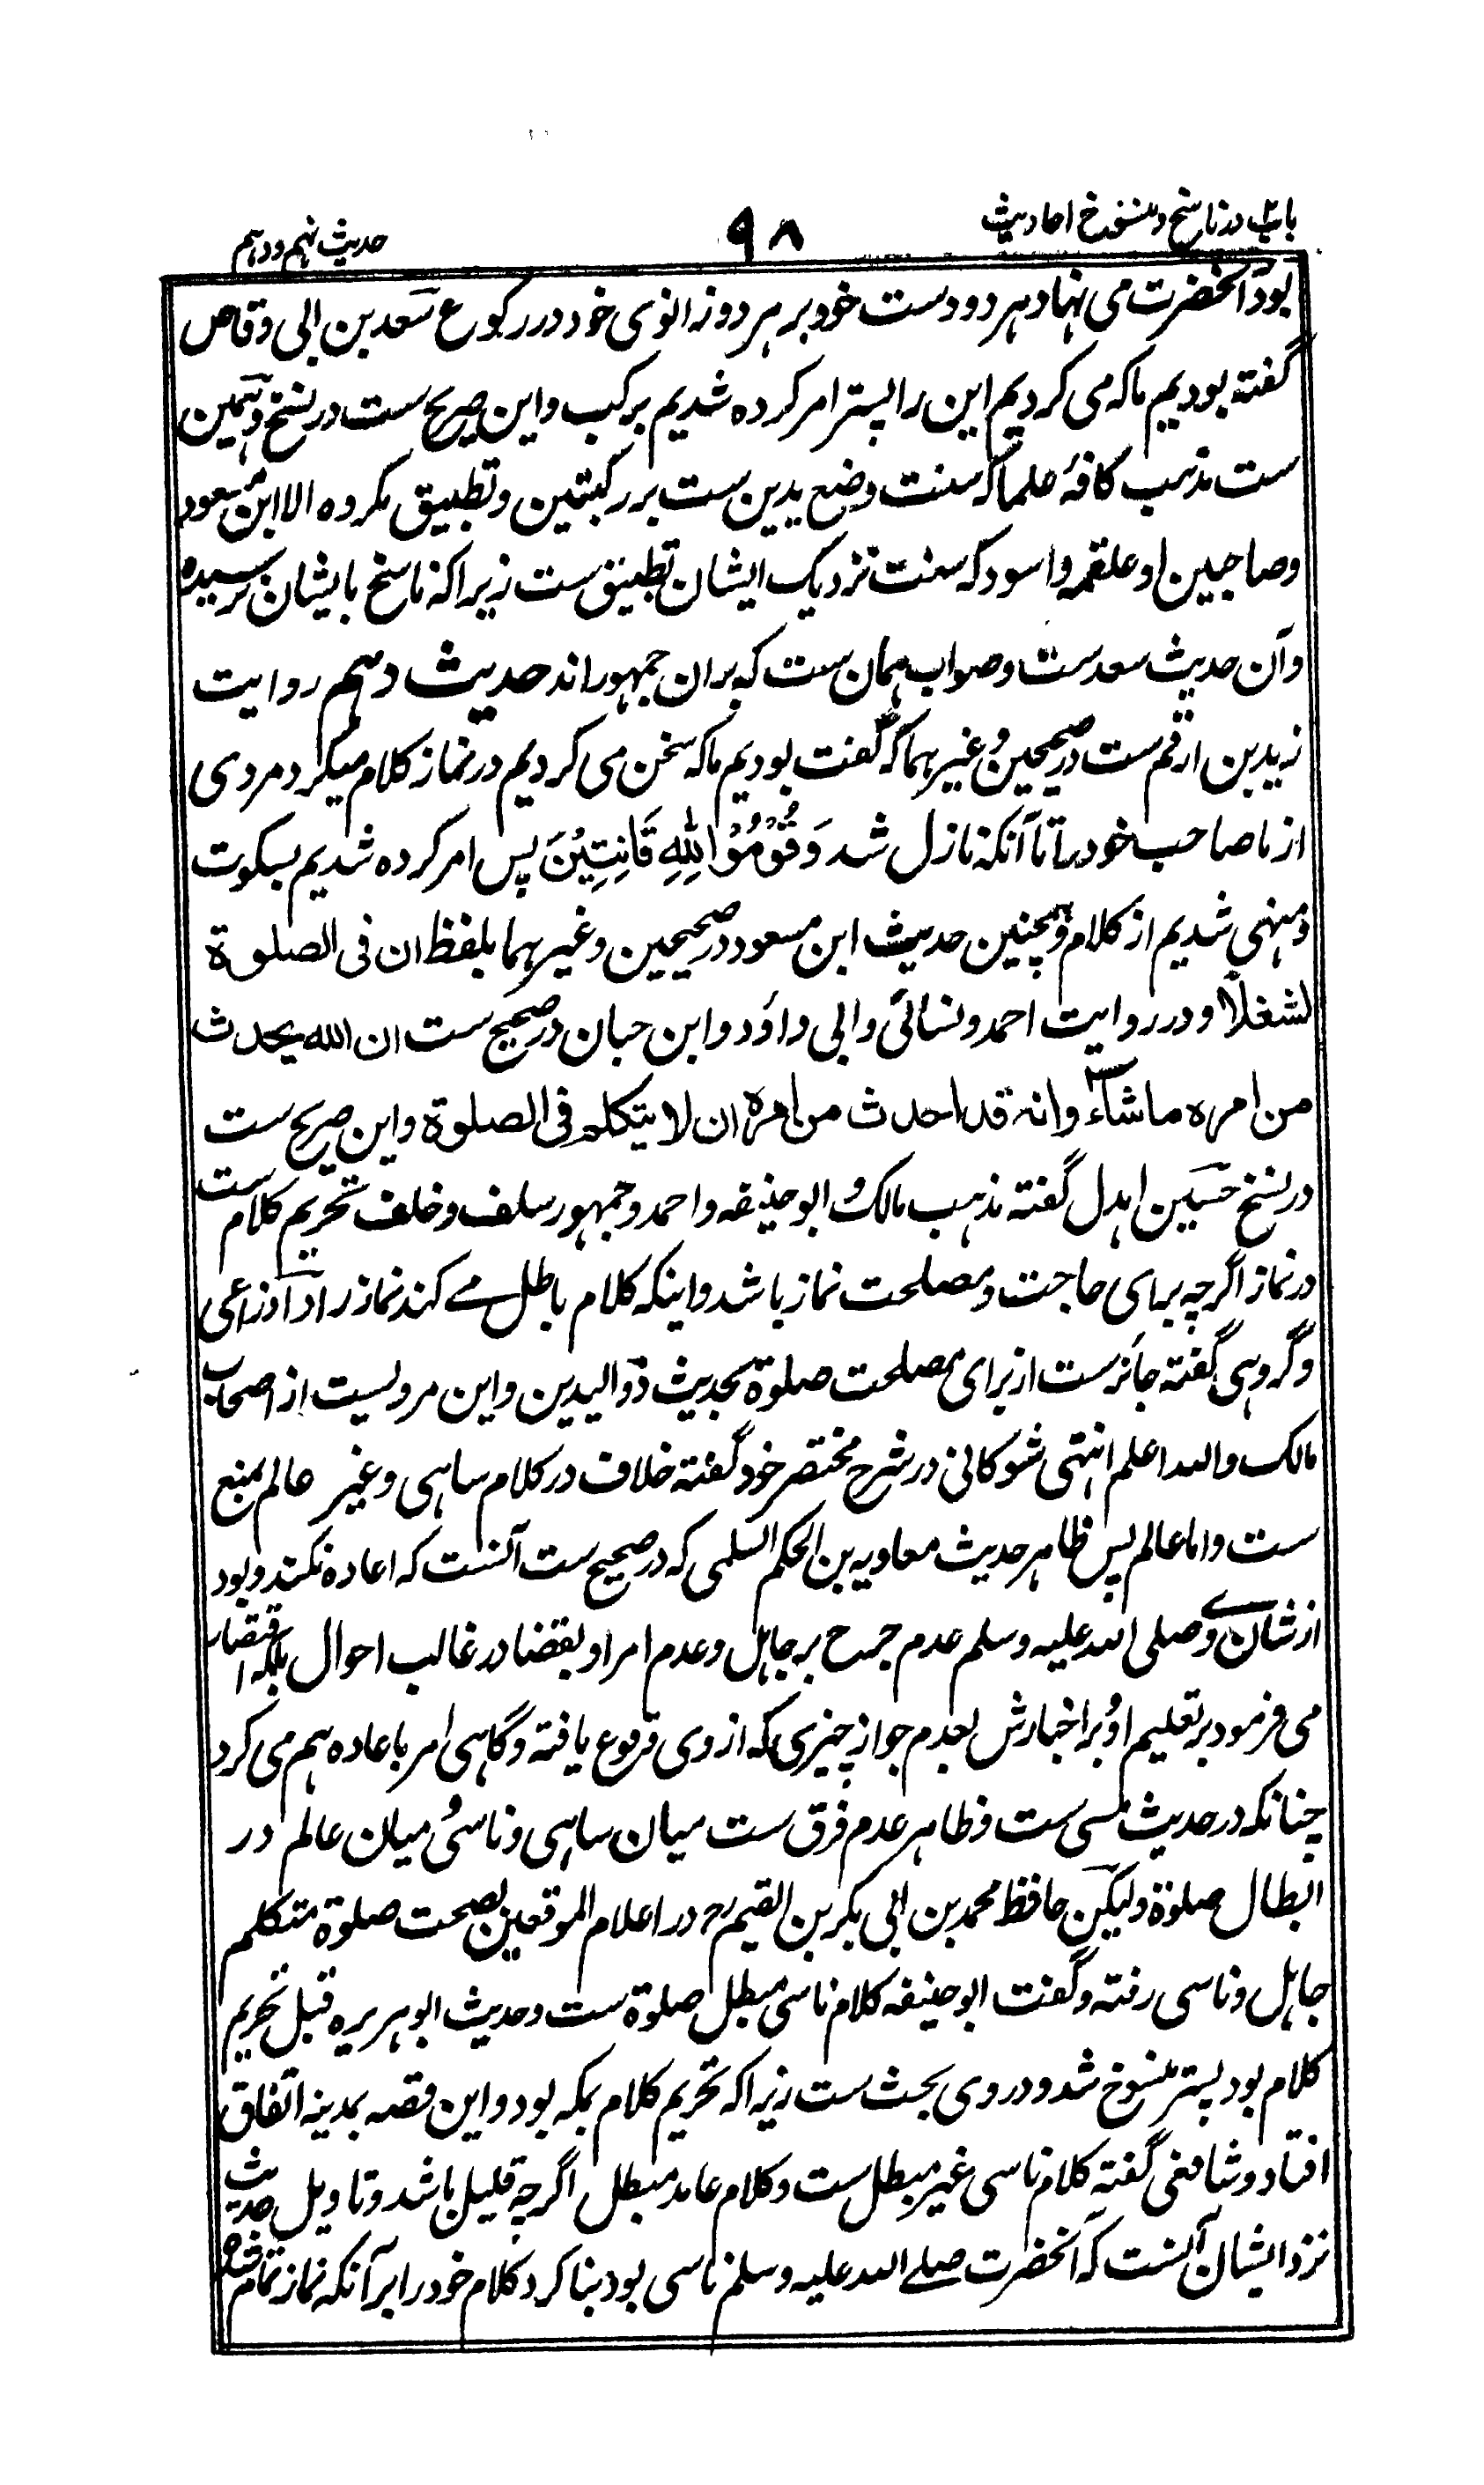 باب در ناسخ و منسوخ احادیث
۹۸
حدیث نهم و دهم
بود آنحضرت می نهاد هر دو دست خود بر هر دو زانوی خود در رکوع سعد بن ابی وقاص
گفته بودیم ما که می کردیم این را پستر امر کرده شدیم برکب و این صریح ست در نسخ و همین
ست مذهب کافهٔ علما که سنت وضع یدین ست بر رکبتین و تطبیق مکروه الا ابن مسعود
و صاحبین او علقمه و اسود که سنت نزدیک ایشان تطبیق ست زیرا که ناسخ بایشان نرسیده
و آن حدیث سعد ست و صواب همان ست که بران جمهور اند حدیث دهم روایت
زید بن ارقم ست در صحیحین و غیرهما که گفت بودیم ما که سخن می کردیم در نماز کلام میکرد مردی
از ما صاحب خود را تا آنکه نازل شد وَقُوْمُوْا لِلّٰهِ قَانِتِیْنَ پس امر کرده شدیم بسکوت
و منهی شدیم از کلام و همچنین حدیث ابن مسعود در صحیحین و غیرهما بلفظ ان فی الصلوة
لشغلاً و در روایت احمد و نسائی و ابی داؤد و ابن حبان در صحیح ست ان الله یحدث
من امره ما شاء و انه قد احدث من امره ان لا یتکلم فی الصلوة و این صریح ست
در نسخ حسین اهدل گفته مذهب مالک و ابو حنیفه و احمد و جمهور سلف و خلف تحریم کلام ست
در نماز اگرچه برای حاجت و مصلحت نماز باشد و اینکه کلام باطل می کند نماز را و اوزاعی
و گروهی گفته جائز ست از برای مصلحت صلوة بحدیث ذو الیدین و این مرویست از اصحاب
مالک والله اعلم انتهی شوکانی در شرح مختصر خود گفته خلاف در کلام ساهی و غیر عالم بمنع
ست و اما عالم پس ظاهر حدیث معاویه بن الحکم السلمی که در صحیح ست آنست که اعاده نکند و بود
از شان وی صلی الله علیه وسلم عدم حرج بر جاهل و عدم امر او بقضا در غالب احوال بلکه اقتصار
می فرمود بر تعلیم او و بر اخبارش بعدم جواز چیزی که از وی وقوع یافته و گاهی امر باعاده هم می کرد
چنانکه در حدیث مسی ست و ظاهر عدم فرق ست میان ساهی و ناسی و میان عالم در
ابطال صلوة ولیکن حافظ محمد بن ابی بکر بن القیم رح در اعلام الموقعین بصحت صلوة متکلم
جاهل و ناسی رفته و گفت ابو حنیفه کلام ناسی مبطل صلوة ست و حدیث ابو هریره قبل تحریم
کلام بود پستر منسوخ شد و در وی بحث ست زیرا که تحریم کلام بمکه بود و این قصه بمدینه اتفاق
افتاد و شافعی گفته کلام ناسی غیر مبطل ست و کلام عامد مبطل اگرچه قلیل باشد و تاویل حدیث
نزد ایشان آنست که آنحضرت صلی الله علیه وسلم ناسی بود بنا کرد کلام خود را بر آنکه نماز تمام شده